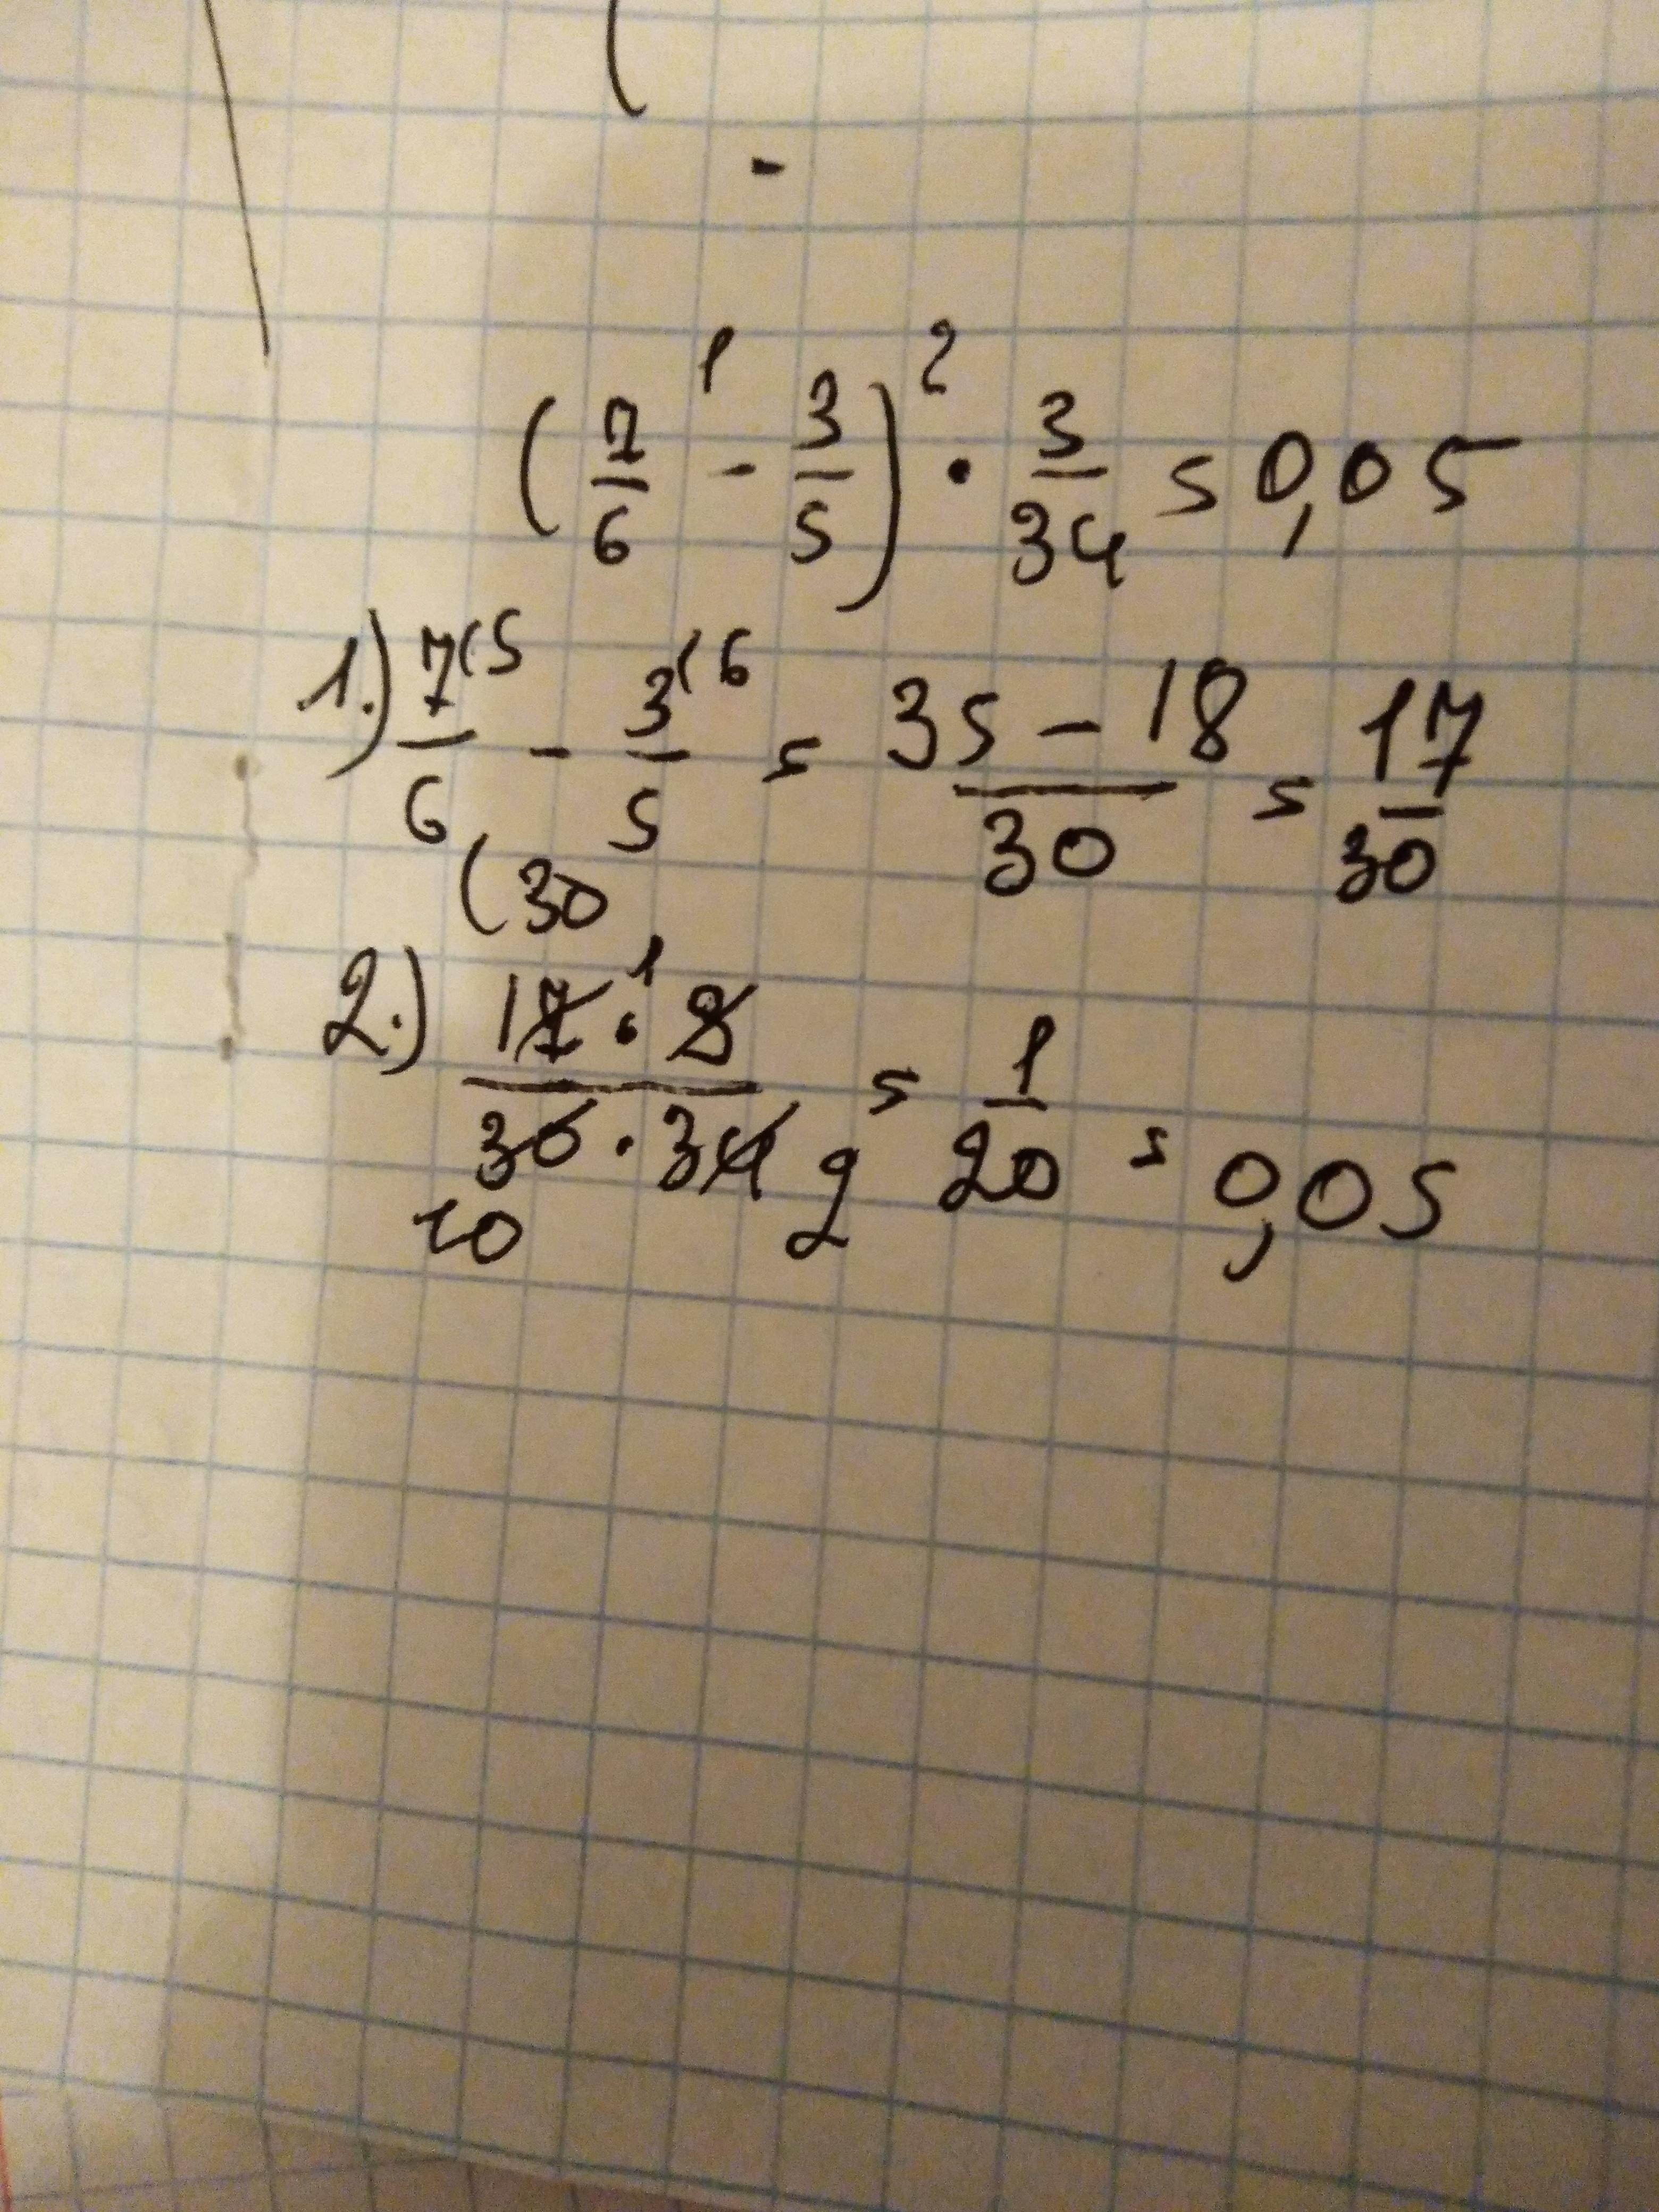 (7/6 - 3/5) · 3/34 = 0,05
1 2
1.) 7(5/6 - 3(6/5 = 35-18/30 = 17/30
(30
2.) 17·3/30·34 = 1/20 = 0,05
1
10 2